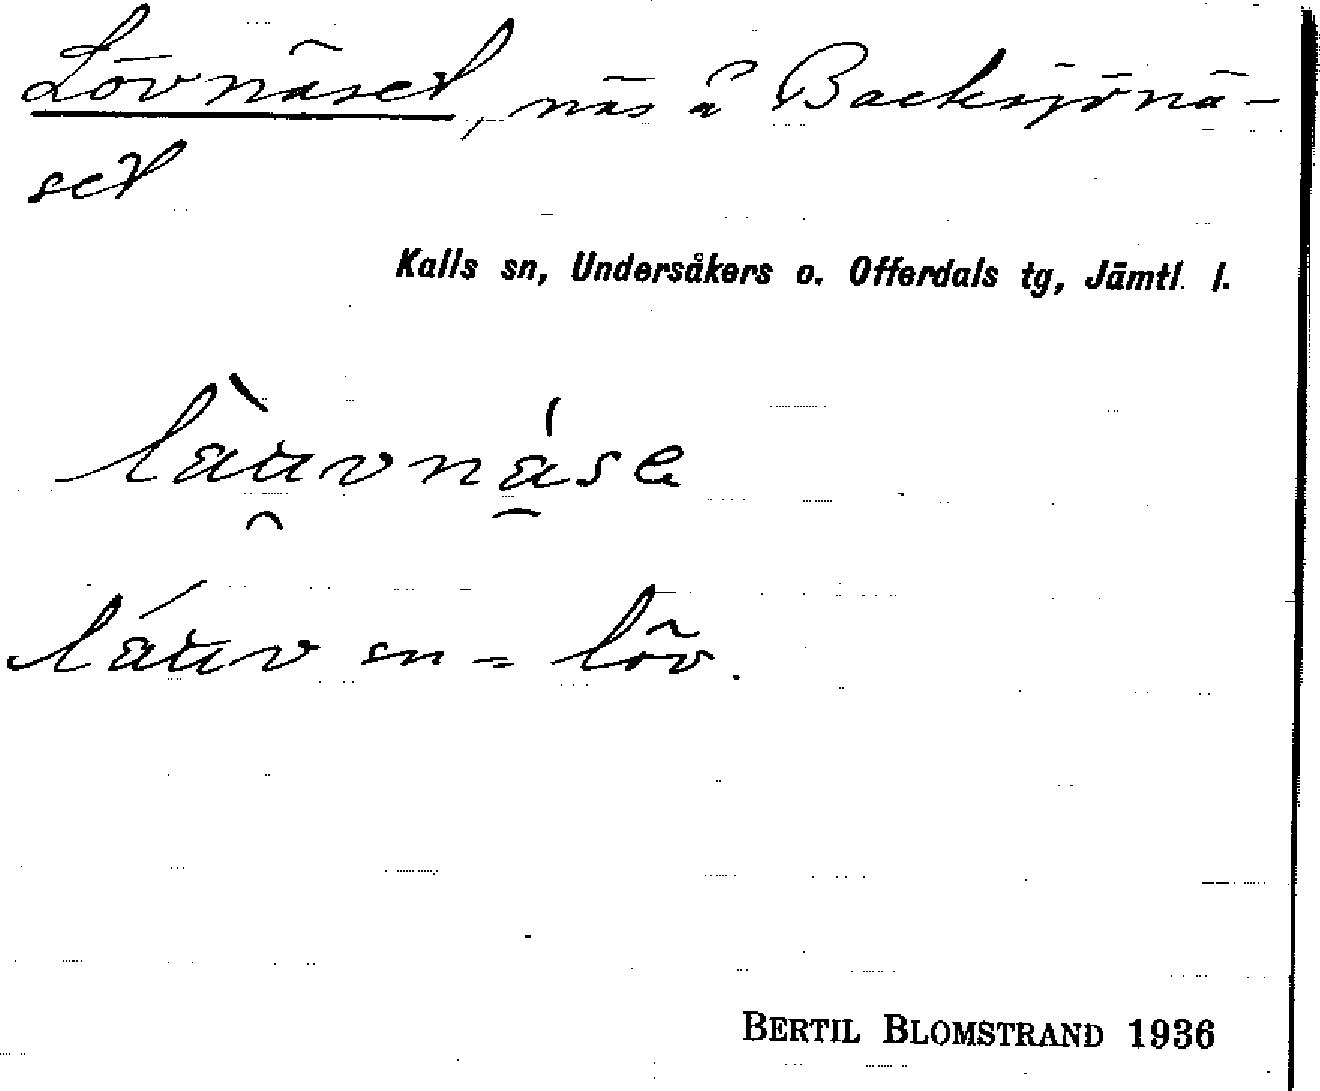 Lövnäset, näs å Backsjönä-
set
Kalls sn, Undersåkers o. Offerdals tg, Jämtl. l.
sn = löv.
BERTIL BLOMSTRAND 1936